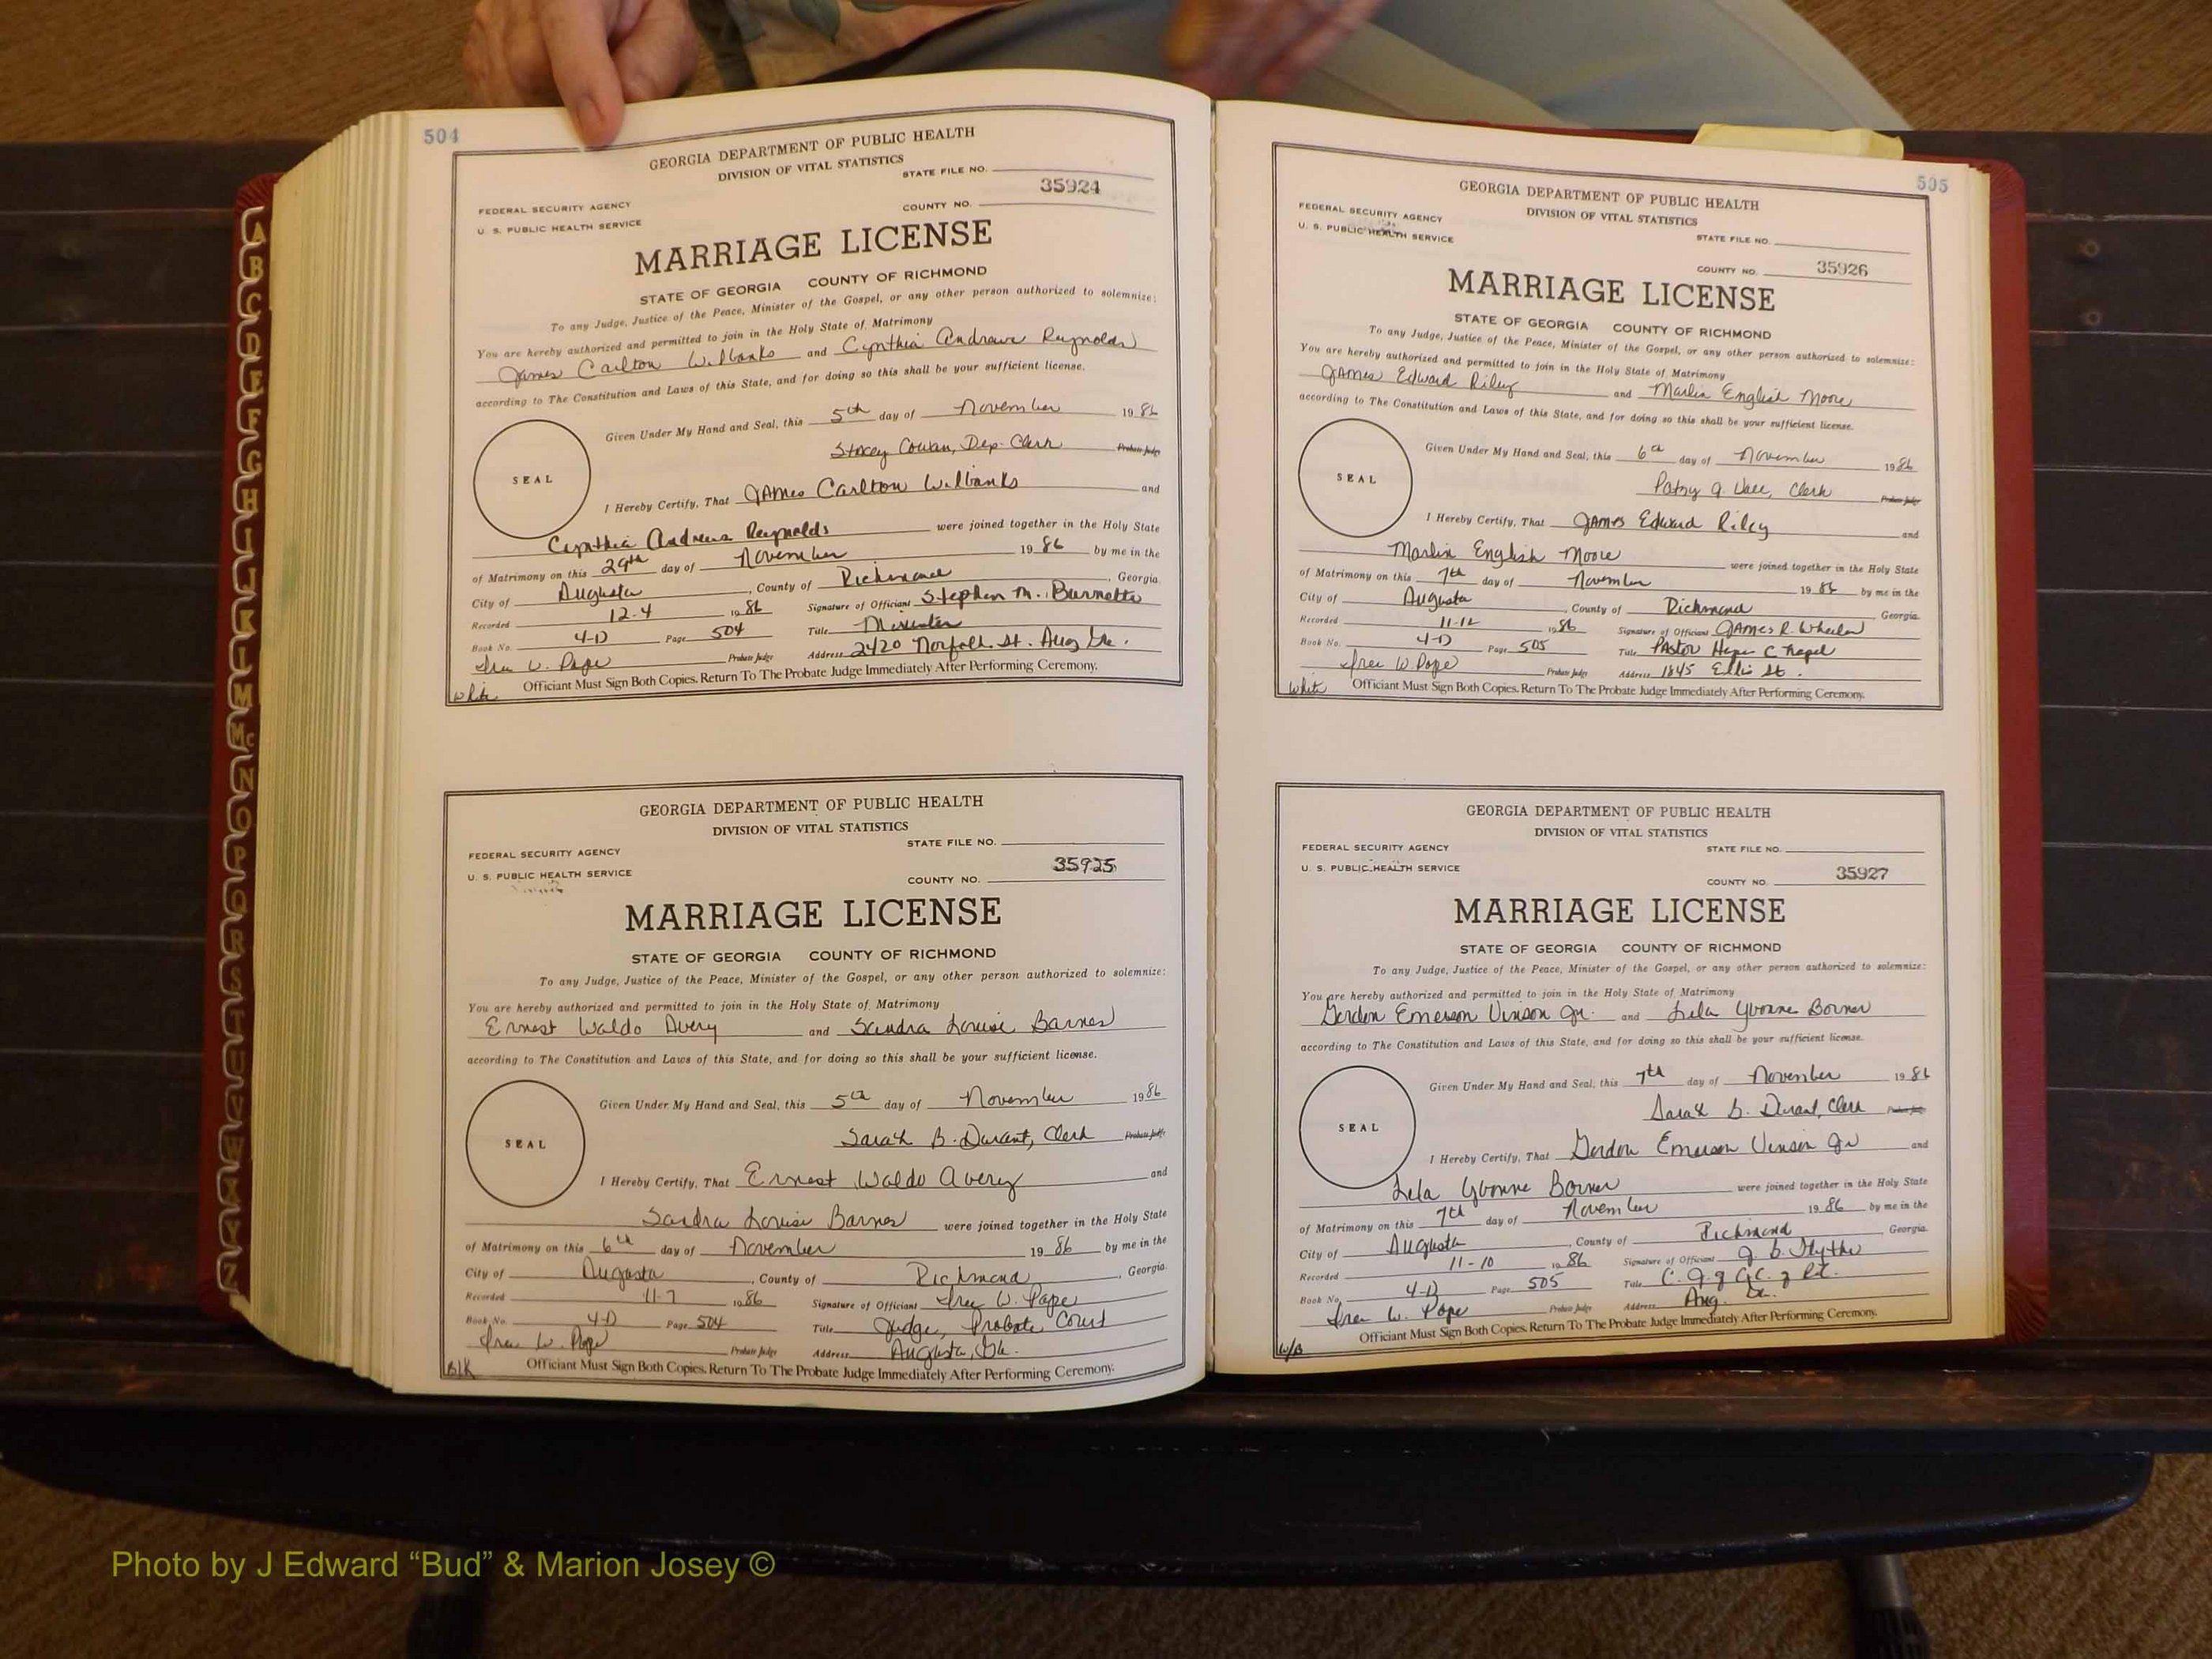 504
GEORGIA DEPARTMENT OF PUBLIC HEALTH
DIVISION OF VITAL STATISTICS
STATE FILE NO.
35924
FEDERAL SECURITY AGENCY
COUNTY NO.
U. S. PUBLIC HEALTH SERVICE
MARRIAGE LICENSE
STATE OF GEORGIA COUNTY OF RICHMOND
To any Judge, Justice of the Peace, Minister of the Gospel, or any other person authorized to solemnize:
You are hereby authorized and permitted to join in the Holy State of Matrimony
James Carlton Wilbanks and Cynthia Andrews Reynolds
according to The Constitution and Laws of this State, and for doing so this shall be your sufficient license.
Given Under My Hand and Seal, this 5th day of November 1986
Stacey Cowan, Dep. Clerk Probate Judge
SEAL
I Hereby Certify, That James Carlton Wilbanks and
Cynthia Andrews Reynolds were joined together in the Holy State
of Matrimony on this 29th day of November 1986 by me in the
City of Augusta, County of Richmond, Georgia
Recorded 12-4 1986 Signature of Officiant Stephen M. Burnette
Book No. 4-D Page 504 Title Minister
W. Pope Probate Judge Address 2420 Norfolk St. Aug Ga.
White Officiant Must Sign Both Copies. Return To The Probate Judge Immediately After Performing Ceremony.
GEORGIA DEPARTMENT OF PUBLIC HEALTH
DIVISION OF VITAL STATISTICS
STATE FILE NO.
FEDERAL SECURITY AGENCY
35925
U. S. PUBLIC HEALTH SERVICE
COUNTY NO.
MARRIAGE LICENSE
STATE OF GEORGIA COUNTY OF RICHMOND
To any Judge, Justice of the Peace, Minister of the Gospel, or any other person authorized to solemnize:
You are hereby authorized and permitted to join in the Holy State of Matrimony
Ernest Waldo Avery and Sandra Louise Barnes
according to The Constitution and Laws of this State, and for doing so this shall be your sufficient license.
Given Under My Hand and Seal, this 5th day of November 1986
Sarah B. Durant, Clerk Probate Judge
SEAL
I Hereby Certify, That Ernest Waldo Avery and
Sandra Louise Barnes were joined together in the Holy State
of Matrimony on this 6th day of November 1986 by me in the
City of Augusta, County of Richmond, Georgia
Recorded 11-7 1986 Signature of Officiant W. Pope
Book No. 4-D Page 504 Title Judge, Probate Court
W. Pope Probate Judge Address Augusta, Ga.
Blk Officiant Must Sign Both Copies. Return To The Probate Judge Immediately After Performing Ceremony.
505
GEORGIA DEPARTMENT OF PUBLIC HEALTH
DIVISION OF VITAL STATISTICS
FEDERAL SECURITY AGENCY
U. S. PUBLIC HEALTH SERVICE
STATE FILE NO.
COUNTY NO. 35926
MARRIAGE LICENSE
STATE OF GEORGIA COUNTY OF RICHMOND
To any Judge, Justice of the Peace, Minister of the Gospel, or any other person authorized to solemnize:
You are hereby authorized and permitted to join in the Holy State of Matrimony
James Edward Riley and Marlin English Moore
according to The Constitution and Laws of this State, and for doing so this shall be your sufficient license.
Given Under My Hand and Seal, this 6th day of November 1986
Clerk Probate Judge
SEAL
I Hereby Certify, That James Edward Riley and
Marlin English Moore were joined together in the Holy State
of Matrimony on this 7th day of November 1986 by me in the
City of Augusta, County of Richmond Georgia
Recorded 11-12 1986 Signature of Officiant James R. Wheeler
Book No. 4-D Page 505 Title Pastor Chapel
W Pope Probate Judge Address 1845 Ellis St.
White Officiant Must Sign Both Copies. Return To The Probate Judge Immediately After Performing Ceremony.
GEORGIA DEPARTMENT OF PUBLIC HEALTH
DIVISION OF VITAL STATISTICS
FEDERAL SECURITY AGENCY
STATE FILE NO.
U. S. PUBLIC HEALTH SERVICE
COUNTY NO. 35927
MARRIAGE LICENSE
STATE OF GEORGIA COUNTY OF RICHMOND
To any Judge, Justice of the Peace, Minister of the Gospel, or any other person authorized to solemnize:
You are hereby authorized and permitted to join in the Holy State of Matrimony
Gordon Emerson Vinson Jr. and Lela Yvonne Borner
according to The Constitution and Laws of this State, and for doing so this shall be your sufficient license.
Given Under My Hand and Seal, this 7th day of November 1986
Sarah B. Durant, Clerk Probate Judge
SEAL
I Hereby Certify, That Gordon Emerson Vinson Jr and
Lela Yvonne Borner were joined together in the Holy State
of Matrimony on this 7th day of November 1986 by me in the
City of Augusta, County of Richmond Georgia
Recorded 11-10 1986 Signature of Officiant
Book No. 4-D Page 505 Title
W. Pope Probate Judge Address Aug. Ga.
W/B Officiant Must Sign Both Copies. Return To The Probate Judge Immediately After Performing Ceremony.
A
B
C
D
E
F
G
H
I
J
K
L
M
Mc
N
O
P
Q
R
S
T
U
V
W
X
Y
Z
Photo by J Edward “Bud” & Marion Josey ©